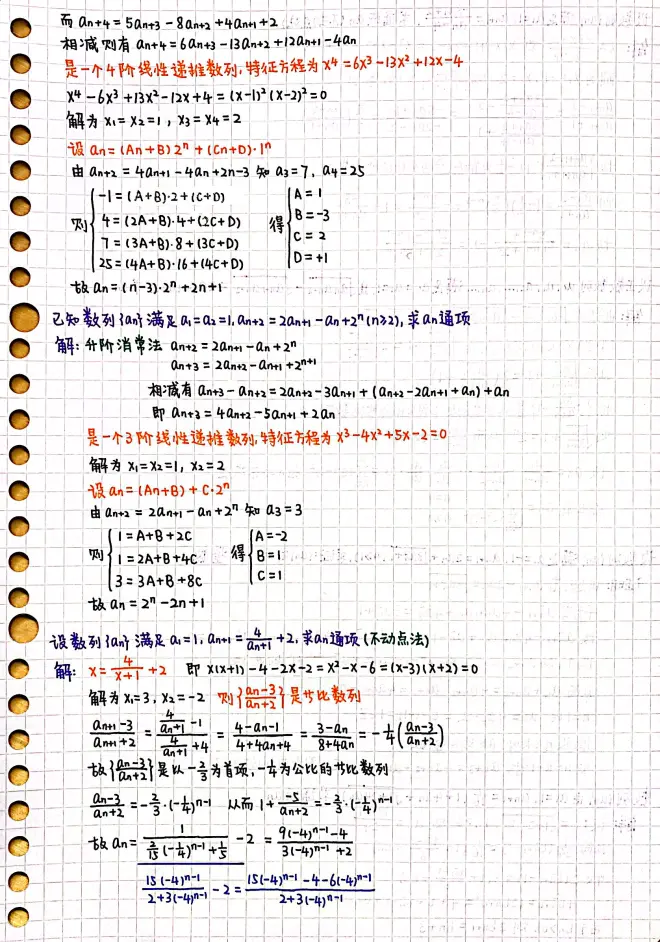 而 an+4 = 5an+3 - 8an+2 + 4an+1 + 2
相减则有 an+4 = 6an+3 - 13an+2 + 12an+1 - 4an
是一个4阶线性递推数列,特征方程为 x⁴ = 6x³ - 13x² + 12x - 4
x⁴ - 6x³ + 13x² - 12x + 4 = (x-1)² (x-2)² = 0
解为 x₁ = x₂ = 1, x₃ = x₄ = 2
设 an = (An+B) 2ⁿ + (Cn+D)·1ⁿ
由 an+2 = 4an+1 - 4an + 2n - 3 知 a₃ = 7, a₄ = 25
则 { -1 = (A+B)·2 + (C+D) 得 { A = 1
4 = (2A+B)·4 + (2C+D) B = -3
7 = (3A+B)·8 + (3C+D) C = 2
25 = (4A+B)·16 + (4C+D) D = +1
故 an = (n-3)·2ⁿ + 2n + 1
已知数列{an}满足 a₁ = a₂ = 1, an+2 = 2an+1 - an + 2ⁿ (n≥2), 求an通项
解: 升阶消常法 an+2 = 2an+1 - an + 2ⁿ
an+3 = 2an+2 - an+1 + 2ⁿ⁺¹
相减有 an+3 - an+2 = 2an+2 - 3an+1 + (an+2 - 2an+1 + an) + an
即 an+3 = 4an+2 - 5an+1 + 2an
是一个3阶线性递推数列,特征方程为 x³ - 4x² + 5x - 2 = 0
解为 x₁ = x₂ = 1, x₂ = 2
设 an = (An+B) + C·2ⁿ
由 an+2 = 2an+1 - an + 2ⁿ 知 a₃ = 3
则 { 1 = A+B+2C 得 { A = -2
1 = 2A+B+4C B = 1
3 = 3A+B+8C C = 1
故 an = 2ⁿ - 2n + 1
设数列{an}满足 a₁ = 1, an+1 = 4/(an+1) + 2, 求an通项 (不动点法)
解: x = 4/(x+1) + 2 即 x(x+1) - 4 - 2x - 2 = x² - x - 6 = (x-3)(x+2) = 0
解为 x₁ = 3, x₂ = -2 则{(an-3)/(an+2)}是等比数列
(an+1 - 3)/(an+1 + 2) = (4/(an+1) - 1)/(4/(an+1) + 4) = (4-an-1)/(4+4an+4) = (3-an)/(8+4an) = -1/4((an-3)/(an+2))
故{(an-3)/(an+2)}是以 -2/3 为首项, -1/4 为公比的等比数列
(an-3)/(an+2) = -2/3·(-1/4)ⁿ⁻¹ 从而 1 + (-5)/(an+2) = -2/3·(-1/4)ⁿ⁻¹
故 an = 1/(2/15(-1/4)ⁿ⁻¹ + 1/5) - 2 = (9(-4)ⁿ⁻¹ - 4)/(3(-4)ⁿ⁻¹ + 2)
15(-4)ⁿ⁻¹/(2+3(-4)ⁿ⁻¹) - 2 = (15(-4)ⁿ⁻¹ - 4 - 6(-4)ⁿ⁻¹)/(2+3(-4)ⁿ⁻¹)